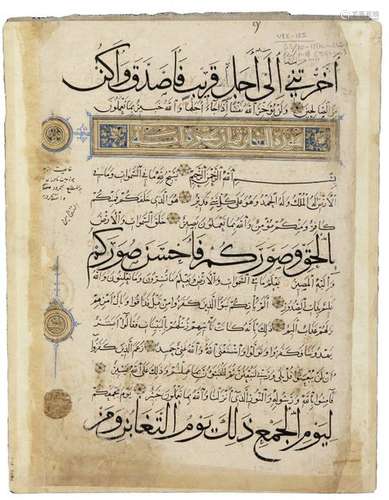 أخرتني إلى أجل قريب فأصدق وأكن
من الصالحين ولن يؤخر الله نفسا إذا جاء أجلها والله خبير بما تعملون
سورة التغابن
بسم الله الرحمن الرحيم يسبح لله ما في السموات وما في
الأرض له الملك وله الحمد وهو على كل شيء قدير هو الذي خلقكم فمنكم كافر
ومنكم مؤمن والله بما تعملون بصير خلق السموات والأرض
بالحق وصوركم فأحسن صوركم
وإليه المصير يعلم ما في السموات والأرض ويعلم ما تسرون وما تعلنون والله
عليم بذات الصدور ألم يأتكم نبأ الذين كفروا من قبل فذاقوا وبال
أمرهم ولهم عذاب أليم ذلك بأنه كانت تأتيهم رسلهم بالبينات فقالوا أبشر
يهدوننا فكفروا وتولوا واستغنى الله والله غني حميد زعم الذين كفروا
أن لن يبعثوا قل بلى وربي لتبعثن ثم لتنبؤن بما عملتم وذلك على الله
يسير فآمنوا بالله ورسوله والنور الذي أنزلنا والله بما تعملون خبير يوم يجمعكم
ليوم الجمع ذلك يوم التغابن ومن